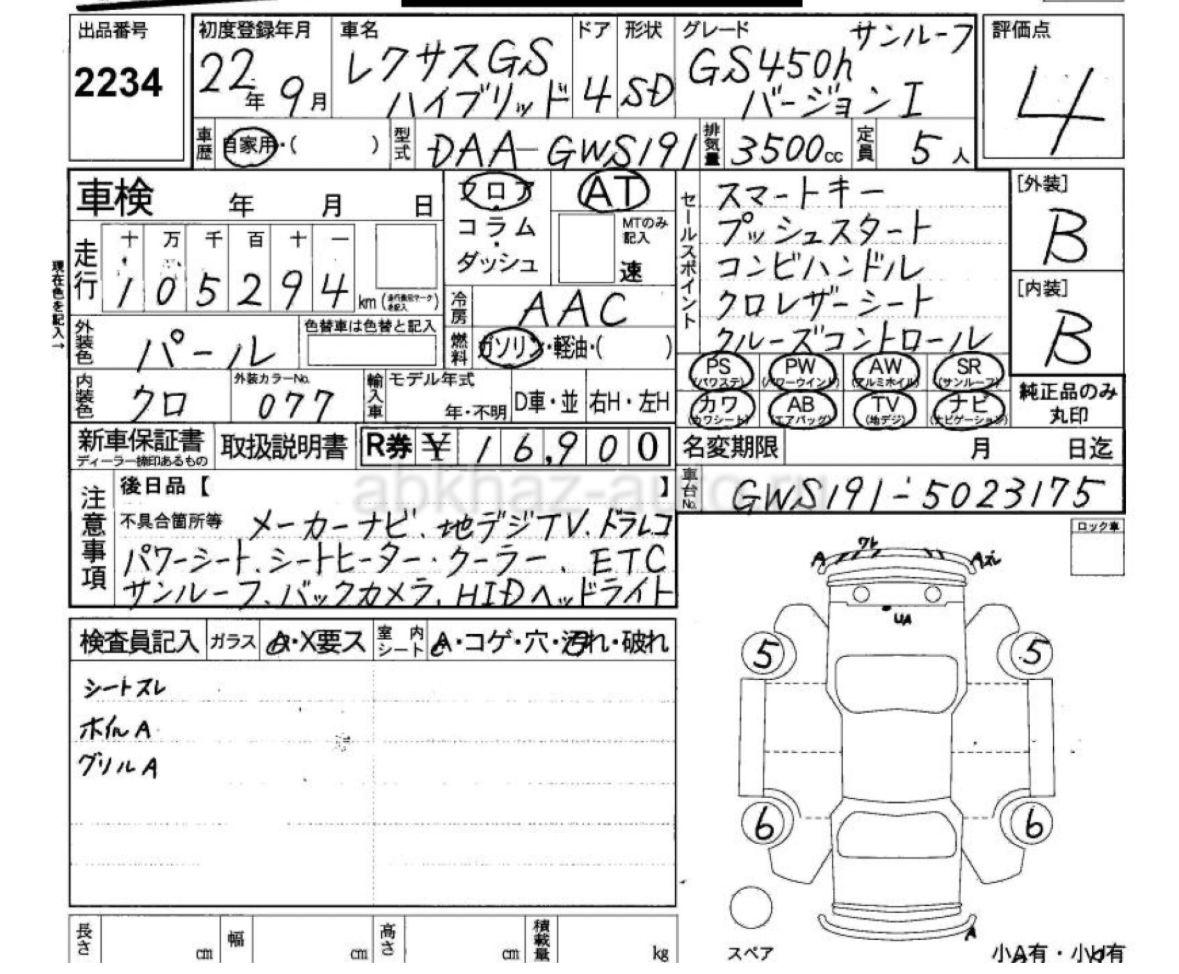 出品番号
2234
初度登録年月
22年 9月
車名
レクサスGS
ハイブリッド
ドア
4
形状
SD
グレード
サンルーフ
GS450h
バージョンI
評価点
4
車歴
自家用・( )
型式
DAA-GWS191
排気量
3500cc
定員
5人
車検 年 月 日
走行
十 万 千 百 十 一
1 0 5 2 9 4 km
現在色を記入→
外装色
パール
色替車は色替と記入
内装色
クロ
外装カラーNo.
077
フロア
コラム・
ダッシュ
AT
MTのみ
記入
速
冷房
AAC
燃料
ガソリン・軽油・( )
輸入車
モデル年式
年・不明
D車・並
右H・左H
セールスポイント
スマートキー
プッシュスタート
コンビハンドル
クロレザーシート
クルーズコントロール
PS
(パワステ)
PW
(パワーウインド)
AW
(アルミホイル)
SR
(サンルーフ)
カワ
(カワシート)
AB
(エアバッグ)
TV
(地デジ)
ナビ
(ナビゲーション)
[外装]
B
[内装]
B
純正品のみ
丸印
新車保証書
ディーラー捺印あるもの
取扱説明書
R券 ¥ 16,900
名変期限 月 日迄
車台No.
GWS191-5023175
abkhaz-auto.ru
注意事項
後日品【 】
不具合箇所等
メーカーナビ、地デジTV、ドラレコ
パワーシート、シートヒーター・クーラー、ETC
サンルーフ、バックカメラ、HIDヘッドライト
ロック車
検査員記入
ガラス
A・X要ス
室内シート
A・コゲ・穴・汚れ・破れ
シートスレ
ホイルA
グリルA
A
ワレ
Aズレ
UA
5
5
6
6
A
スペア
小A有・小U有
長さ
cm
幅
cm
高さ
cm
積載量
kg